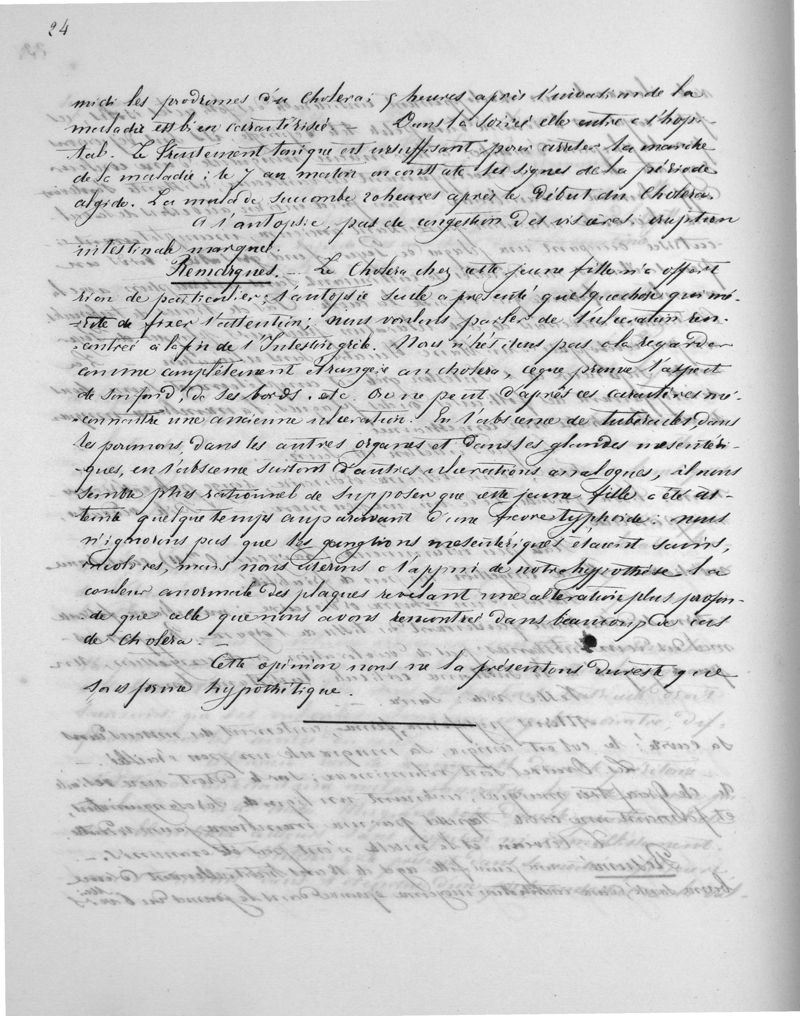 24
midi les prodromes du Cholera; 5 heures après l'invasion de la
maladie est bien caractérisée. Dans la soirée elle entre a l'hopi-
tal. Le traitement tonique est insuffisant pour arrêter la marche
de la maladie: le 7 au matin on constate les signes de la période
algide. La malade succombe 20 heures après le début du Cholera.
A l'autopsie, pas de congestion des viscères; éruption
intestinale marquée.
Remarques. — Le Cholera chez cette jeune fille n'a offert
rien de particulier; l'autopsie seule a présenté quelque chose qui mé-
-rite de fixer l'attention; nous voulons parler de l'ulcération ren-
-contrée à la fin de l'Intestin grêle. Nous n'hésitons pas a la regarder
comme complètement étrangère au cholera, ce que prouve l'aspect
de son fond, de ses bords, etc. On ne peut d'après ces caractères mé-
-connaître une ancienne ulceration. En l'absence de tubercules dans
les poumons, dans les autres organes et dans les glandes mesentéri-
-ques, en l'absence surtout d'autres ulcerations analogues, il nous
semble plus rationnel de supposer que cette jeune fille a été at-
teinte quelque temps auparavant d'une fievre typhoïde: nous
n'ignorons pas que les ganglions mesentériques étaient sains,
incolores, mais nous citerons a l'appui de notre hypothèse la
couleur anormale des plaques revêlant une altération plus profon-
-de que celle que nous avons rencontrée dans beaucoup de cas
de cholera. —
Cette opinion nous ne la présentons du reste que
sous forme hypothétique.